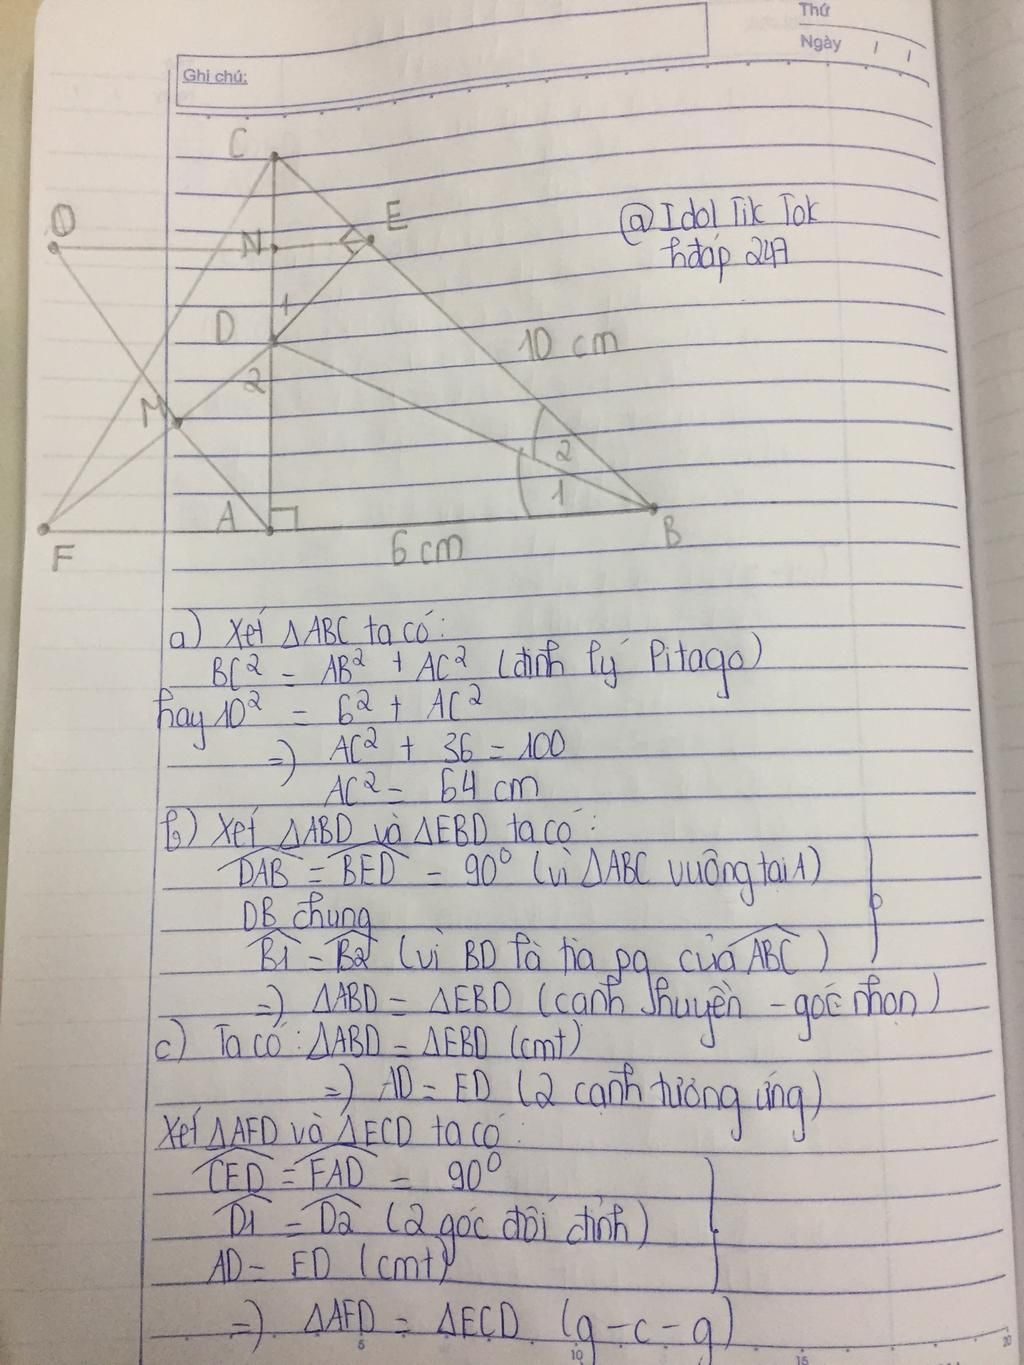 Thứ
Ngày / /
Ghi chú:
C
O
N
E
@Idol Tik Tok
hđáp 247
1
D
10 cm
2
M
2
1
A
B
F
6 cm
a) Xét ΔABC ta có:
BC² = AB² + AC² (định lý Pitago)
hay 10² = 6² + AC²
=) AC² + 36 = 100
AC² = 64 cm
b) Xét ΔABD và ΔEBD ta có:
DAB = BED = 90° (vì ΔABC vuông tại A)
DB chung
B1 = B2 (vì BD là tia pg của ABC)
=) ΔABD = ΔEBD (cạnh huyền - góc nhọn)
c) Ta có: ΔABD = ΔEBD (cmt)
=) AD = ED (2 cạnh tương ứng)
Xét ΔAFD và ΔECD ta có:
CED = FAD = 90°
D1 = D2 (2 góc đối đỉnh)
AD = ED (cmt)
=) ΔAFD = ΔECD (g-c-g)
5 10 15 20